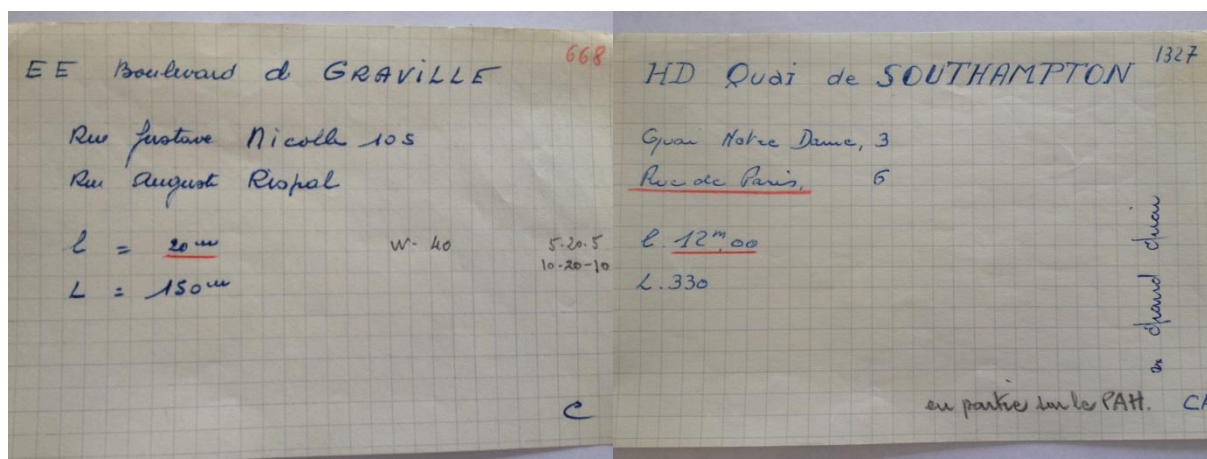 668
EE Boulevard d GRAVILLE
Rue Gustave Nicolle 105
Rue Auguste Rispal
l = 20 m
W - 40
5-20-5
10-20-10
L = 150 m
C
1327
HD Quai de SOUTHAMPTON
Quai Notre Dame, 3
Rue de Paris, 6
l. 12m,00
L. 330
Grand Quai
en partie sur le PAH.